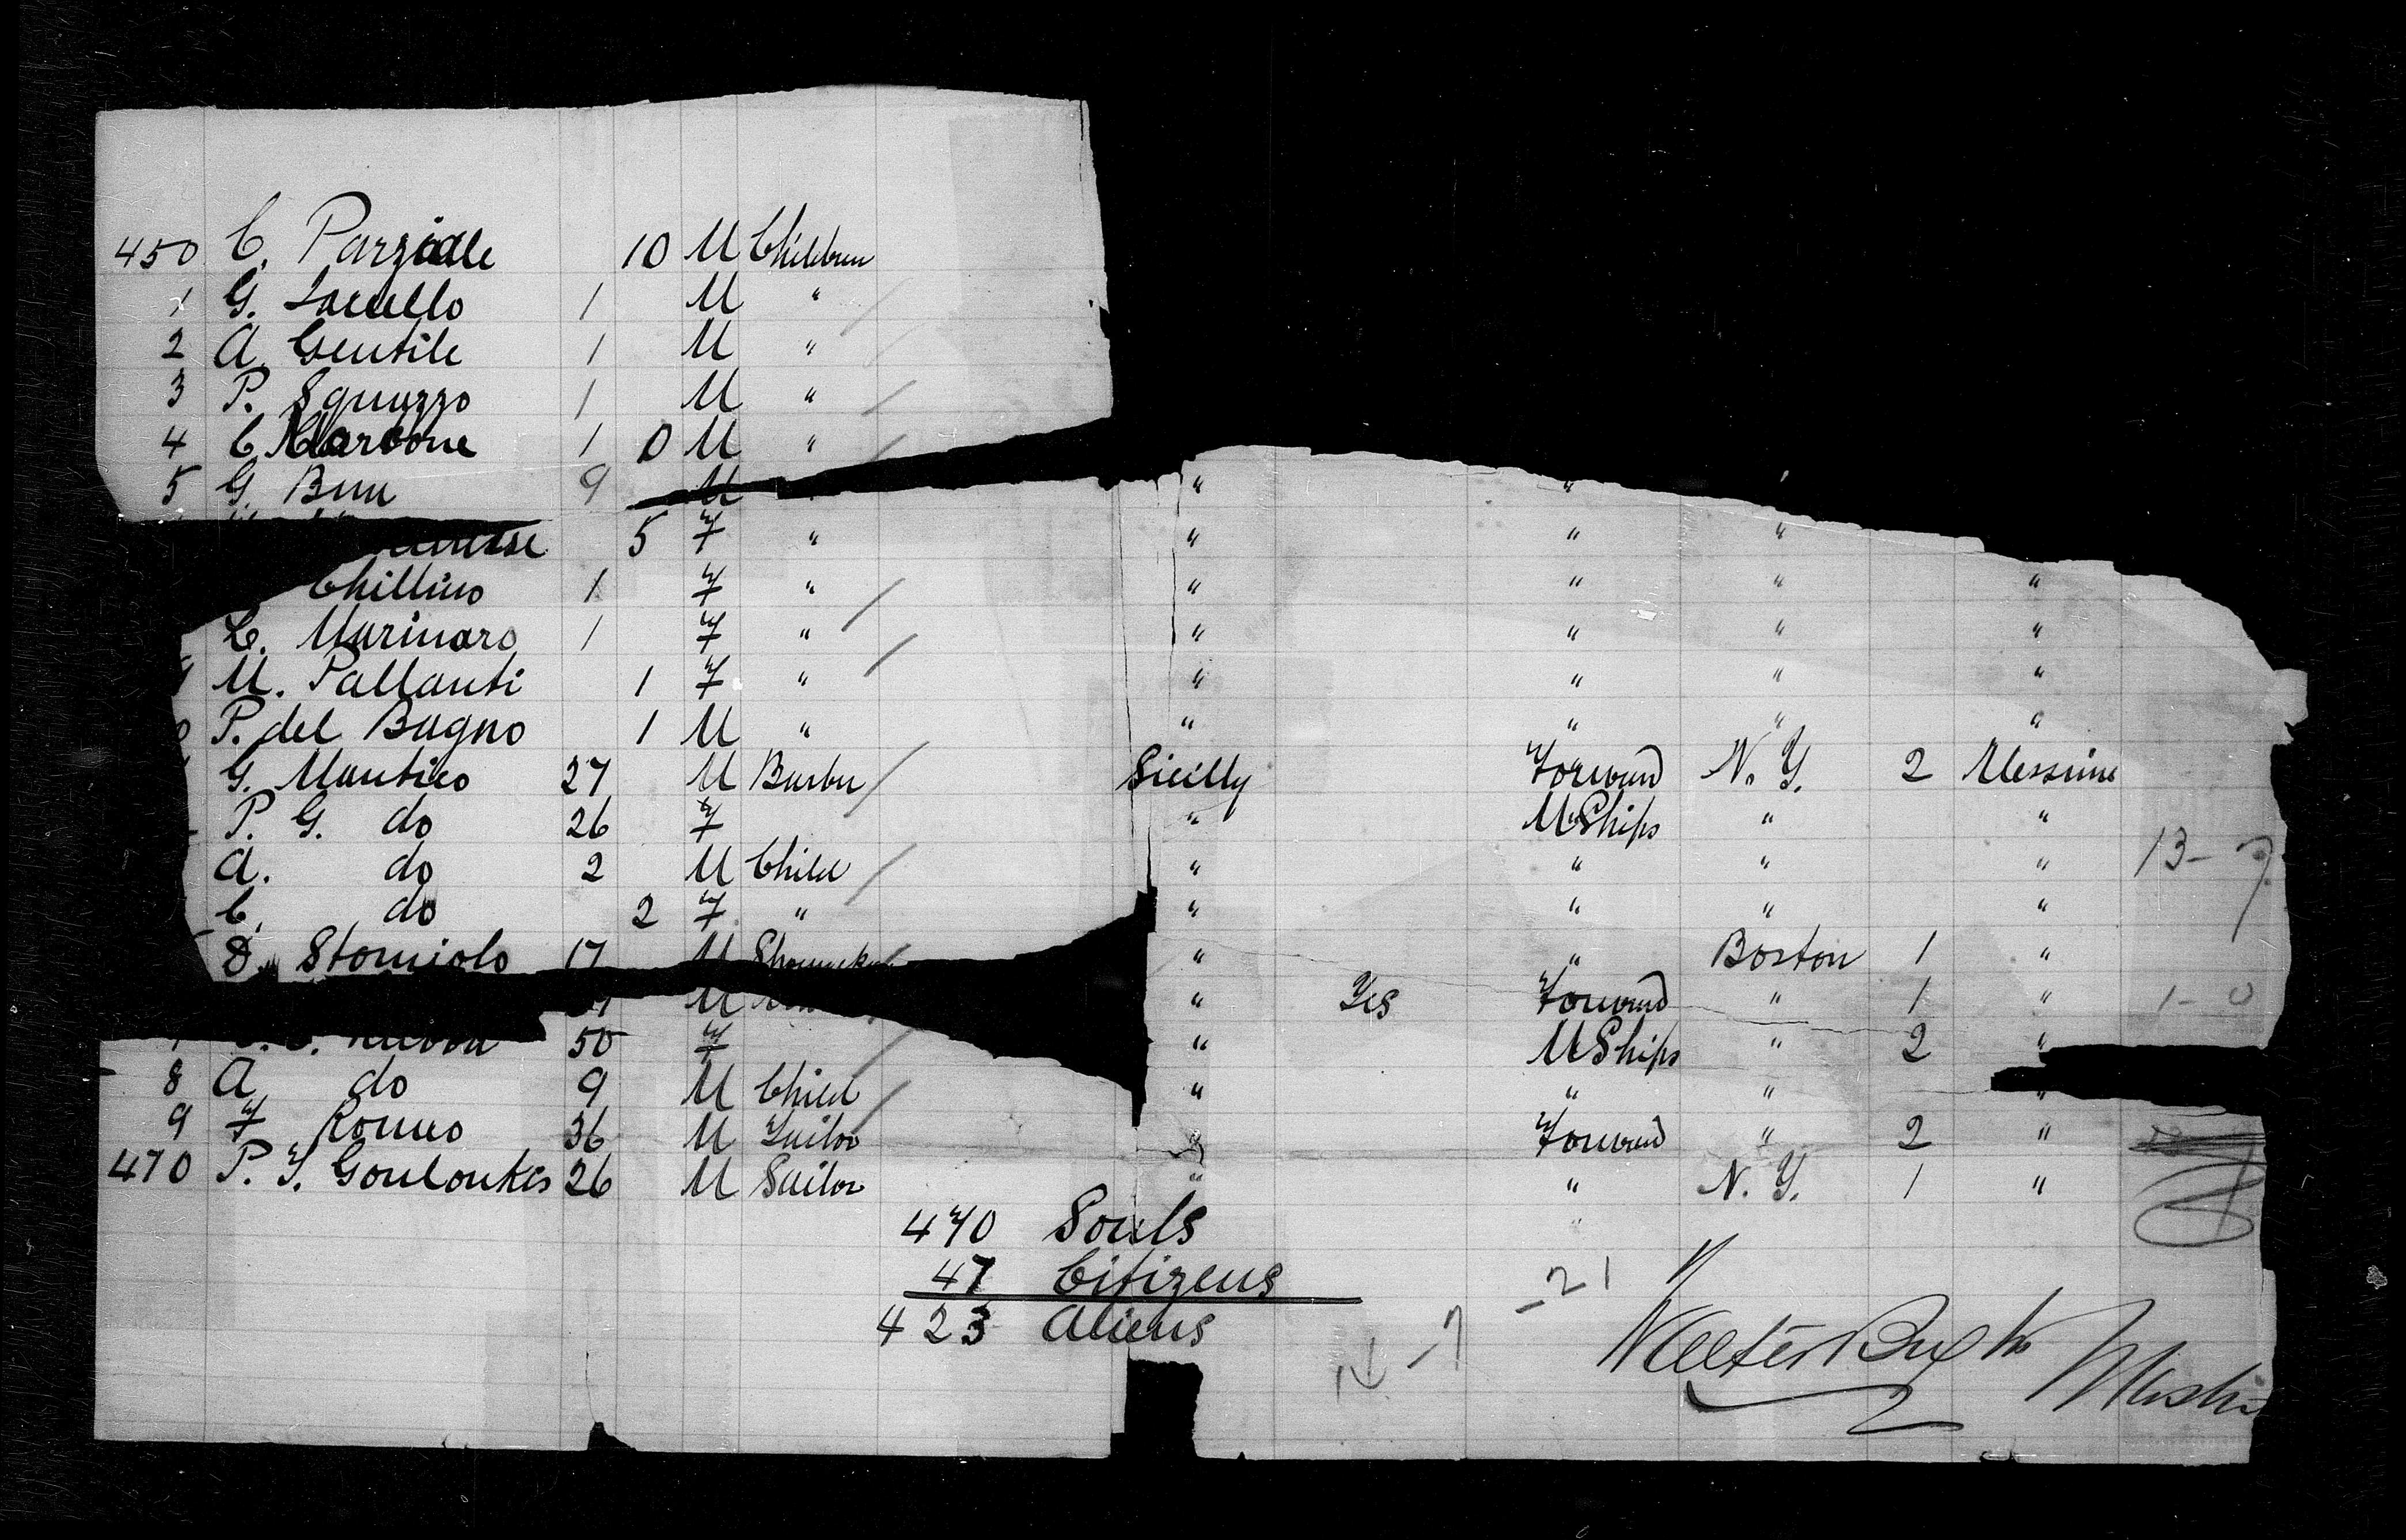 450 C. Parziale 10 M Children
1 G. Lacullo 1 M "
2 A. Gentile 1 M "
3 P. Squazzo 1 M "
4 C. Carbone 1 0 M "
5 G. Bruu 9 M " "
5 F " " " "
Chillino 1 F " " " " "
C. Marinaro 1 F " " " " "
M. Pallanti 1 F " " " " "
P. del Bagno 1 M " " " " "
G. Mantico 27 M Barber Sicilly Forward N. Y. 2 Messina
P. G. do 26 F " M Ships " " 13-7
A. do 2 M Child " " " "
C. do 2 F " " " " "
D. Storniolo 17 M Shoemaker " " Boston 1 "
M " Yes Forward " 1 " 1-0
50 F " M Ships " 2 "
8 A do 9 M Child " " " "
9 F Romeo 36 M Tailor " Forward " 2 "
470 P. Y. Gouloukis 26 M Sailor " " N. Y. 1 "
470 Souls
47 Citizens
423 Aliens
-21
-7
Walter